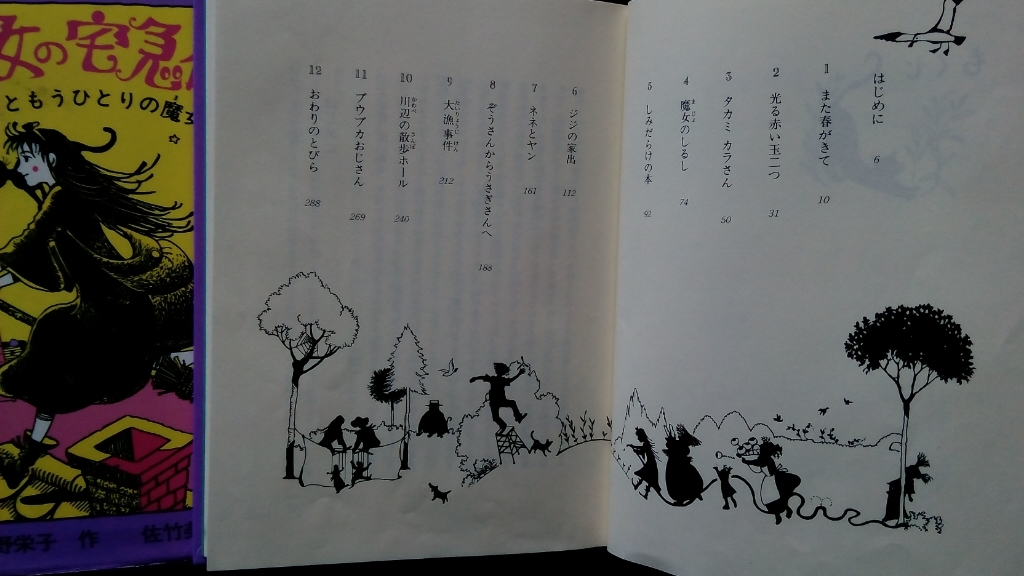 女の宅急
ともうひとりの魔女
野栄子 作 佐竹美
はじめに 6
1 また春がきて 10
2 光る赤い玉二つ 31
3 タカミ カラさん 50
4 魔女のしるし 74
5 しみだらけの本 92
6 ジジの家出 112
7 ネネとヤン 161
8 ぞうさんからうさぎさんへ 188
9 大漁事件 212
10 川辺の散歩ホール 240
11 プウプカおじさん 269
12 おわりのとびら 288